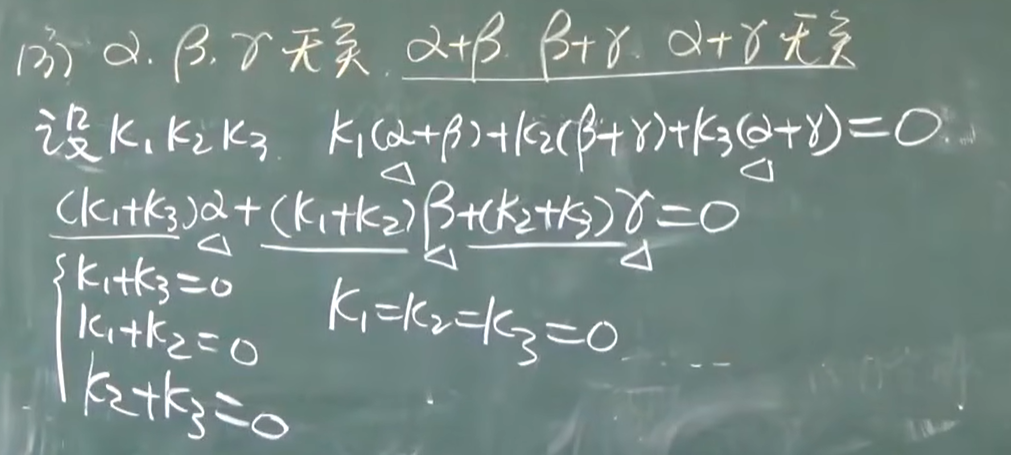 例) α. β. γ 无关. α+β. β+γ. α+γ 无关
设 K₁ K₂ K₃. K₁(α+β)+K₂(β+γ)+K₃(α+γ)=0.
(K₁+K₃)α+(K₁+K₂)β+(K₂+K₃)γ=0
{K₁+K₃=0
K₁+K₂=0
K₂+K₃=0
K₁=K₂=K₃=0